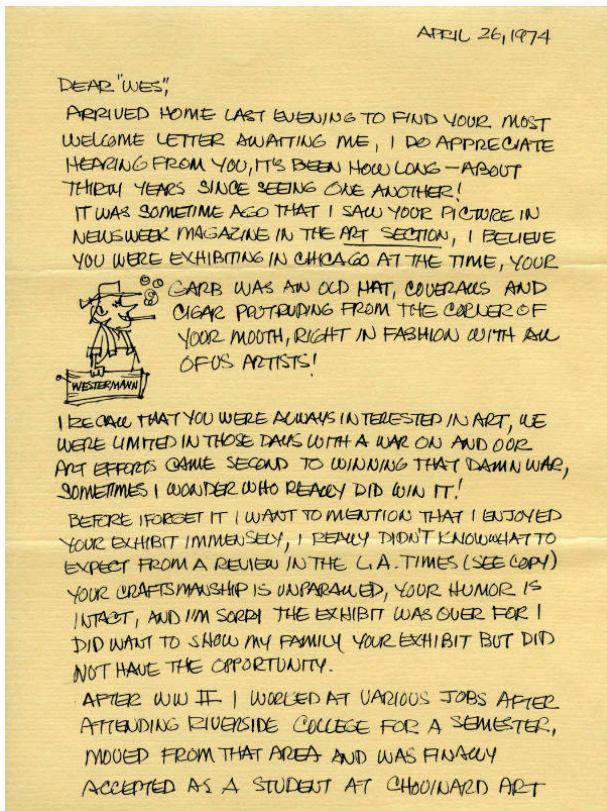 APRIL 26, 1974
DEAR "WES",
ARRIVED HOME LAST EVENING TO FIND YOUR MOST
WELCOME LETTER AWAITING ME, I DO APPRECIATE
HEARING FROM YOU, IT'S BEEN HOW LONG — ABOUT
THIRTY YEARS SINCE SEEING ONE ANOTHER!
IT WAS SOMETIME AGO THAT I SAW YOUR PICTURE IN
NEWSWEEK MAGAZINE IN THE ART SECTION, I BELIEVE
YOU WERE EXHIBITING IN CHICAGO AT THE TIME, YOUR
GARB WAS AN OLD HAT, COVERALLS AND
CIGAR PROTRUDING FROM THE CORNER OF
YOUR MOUTH, RIGHT IN FASHION WITH ALL
OF US ARTISTS!
WESTERMANN
I RECALL THAT YOU WERE ALWAYS INTERESTED IN ART, WE
WERE LIMITED IN THOSE DAYS WITH A WAR ON AND OUR
ART EFFORTS CAME SECOND TO WINNING THAT DAMN WAR,
SOMETIMES I WONDER WHO REALLY DID WIN IT!
BEFORE I FORGET IT I WANT TO MENTION THAT I ENJOYED
YOUR EXHIBIT IMMENSELY, I REALLY DIDN'T KNOW WHAT TO
EXPECT FROM A REVIEW IN THE L.A. TIMES (SEE COPY)
YOUR CRAFTSMANSHIP IS UNPARALLED, YOUR HUMOR IS
INTACT, AND I'M SORRY THE EXHIBIT WAS OVER FOR I
DID WANT TO SHOW MY FAMILY YOUR EXHIBIT BUT DID
NOT HAVE THE OPPORTUNITY.
AFTER WW II I WORKED AT VARIOUS JOBS AFTER
ATTENDING RIVERSIDE COLLEGE FOR A SEMESTER,
MOVED FROM THAT AREA AND WAS FINALLY
ACCEPTED AS A STUDENT AT CHOUINARD ART